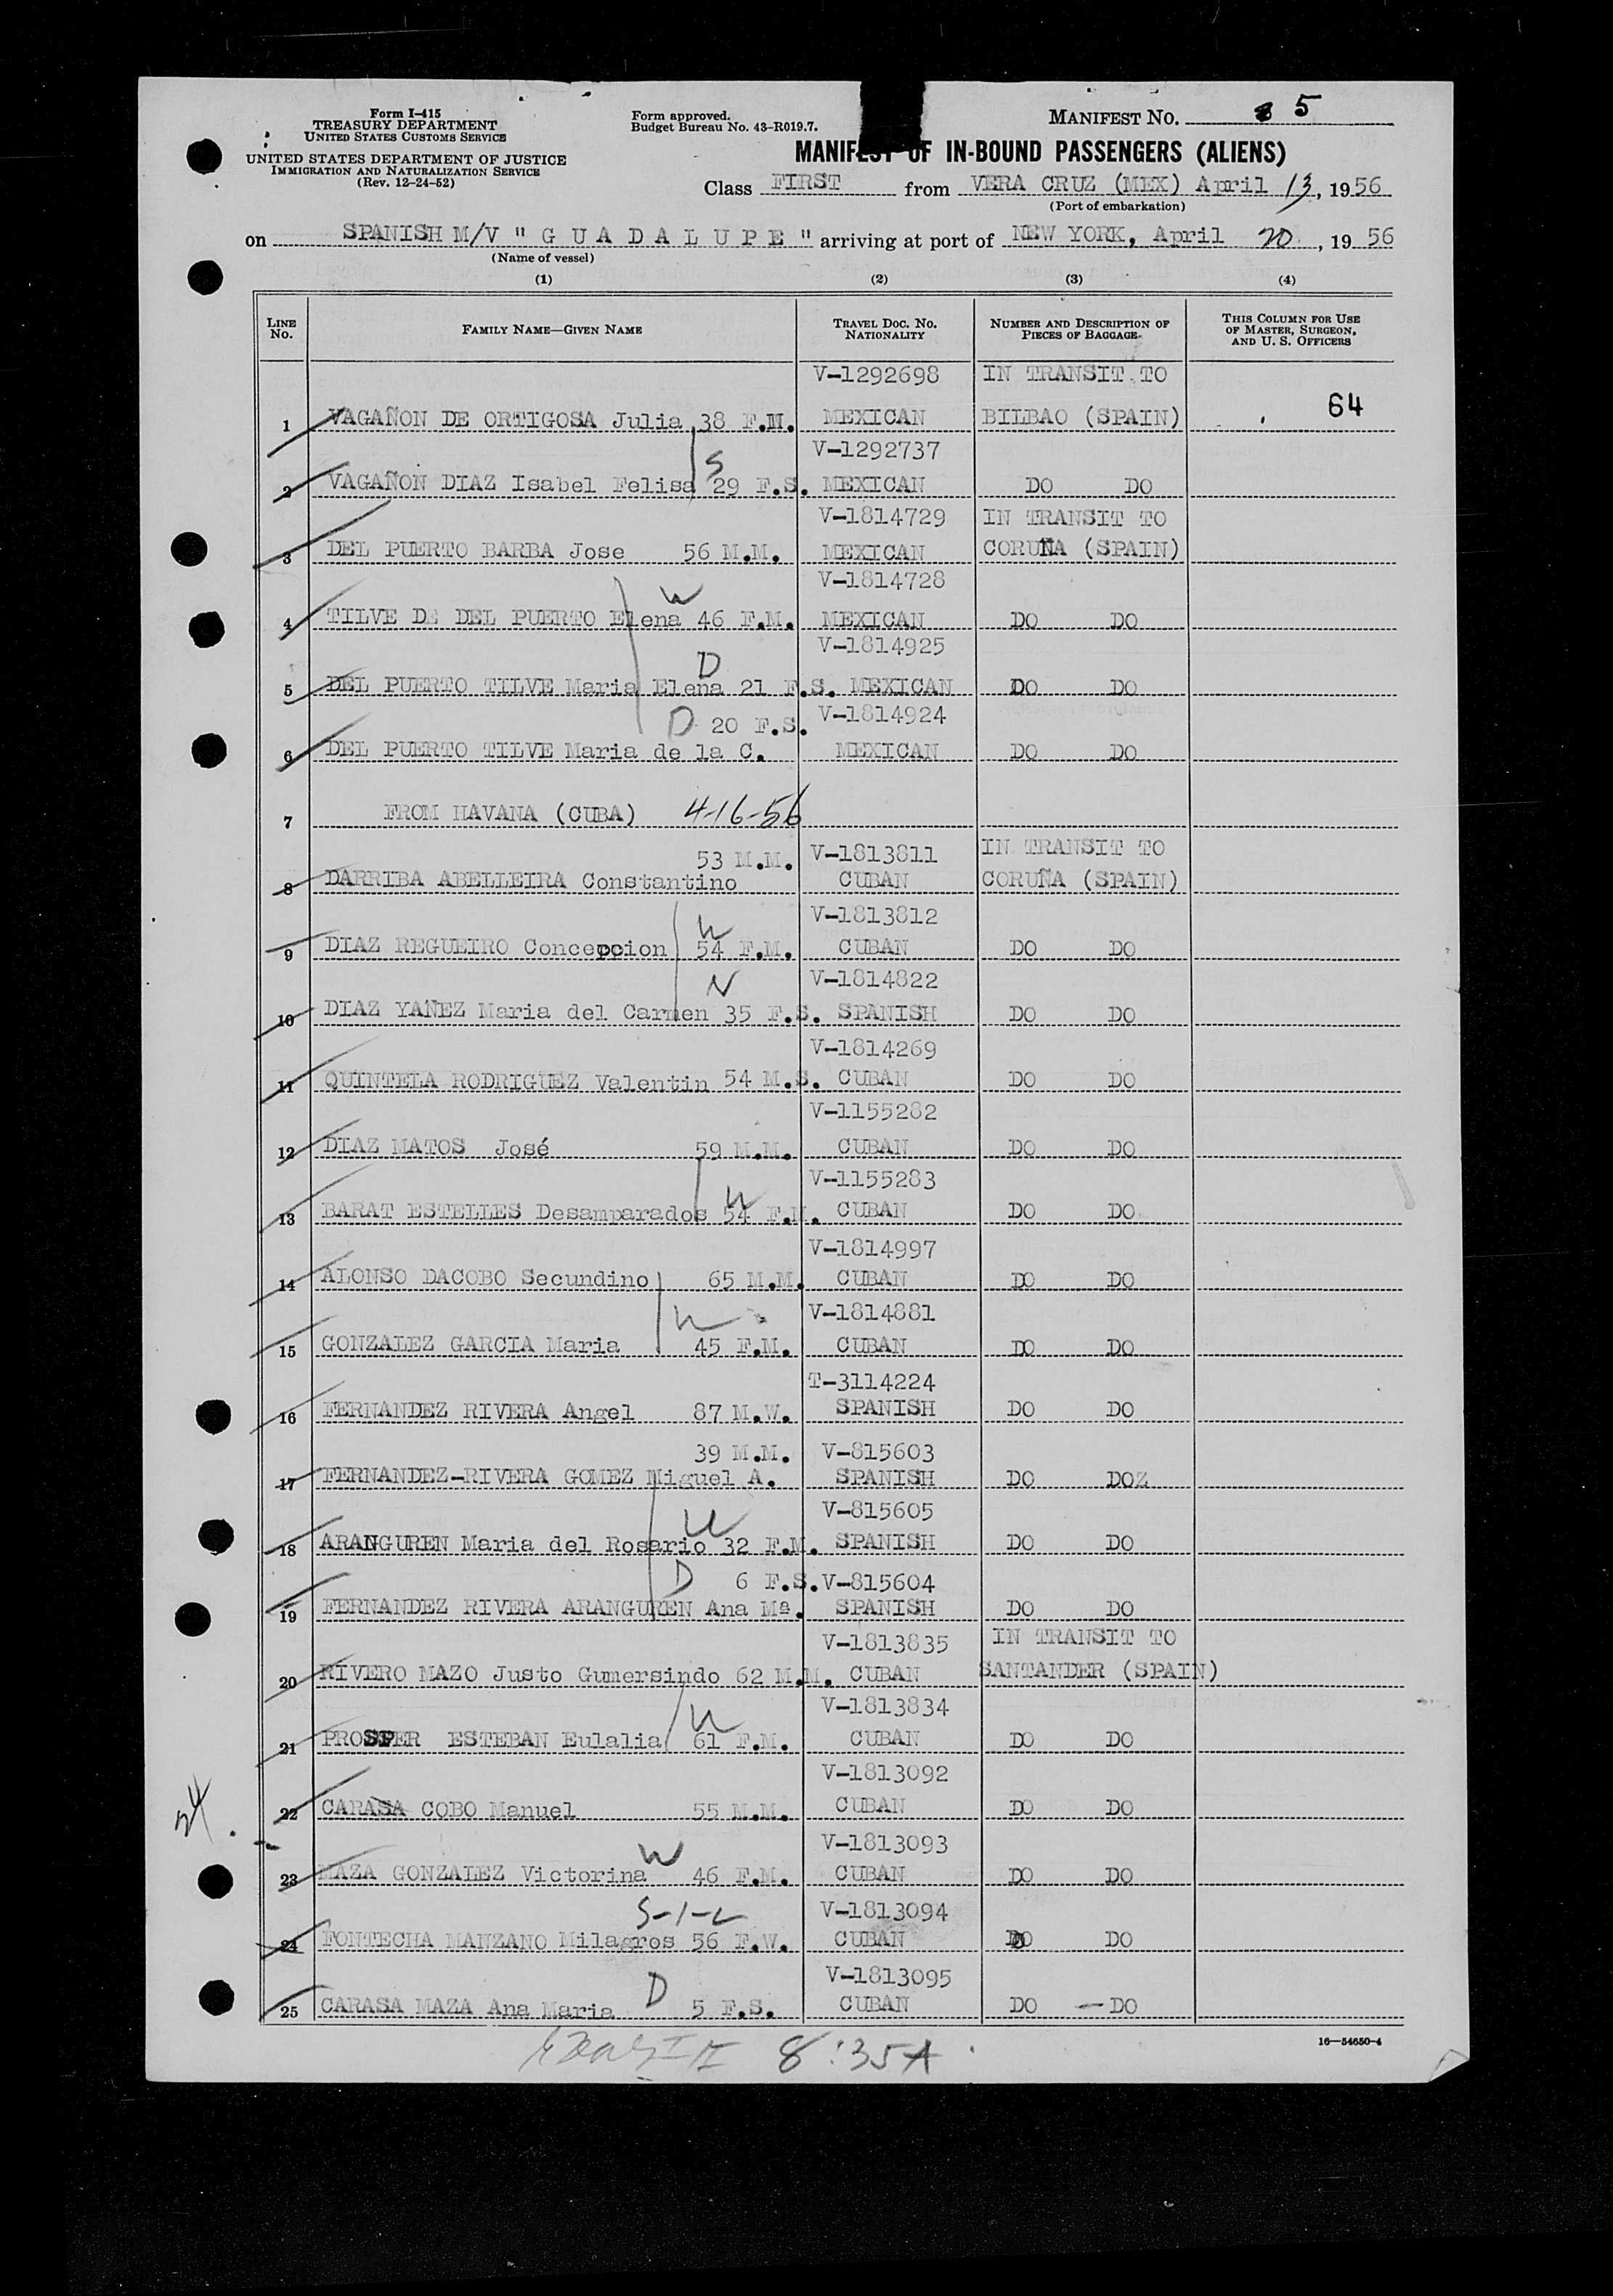 Form I-415
TREASURY DEPARTMENT
UNITED STATES CUSTOMS SERVICE
UNITED STATES DEPARTMENT OF JUSTICE
IMMIGRATION AND NATURALIZATION SERVICE
(Rev. 12-24-52)
Form approved.
Budget Bureau No. 43-R019.7.
MANIFEST NO. 5
MANIFEST OF IN-BOUND PASSENGERS (ALIENS)
Class FIRST from VERA CRUZ (MEX) April 13, 1956
(Port of embarkation)
on SPANISH M/V " G U A D A L U P E " arriving at port of NEW YORK, April 20, 1956
(Name of vessel)
(1) (2) (3) (4)
LINE NO. FAMILY NAME—GIVEN NAME TRAVEL DOC. NO. NATIONALITY NUMBER AND DESCRIPTION OF PIECES OF BAGGAGE THIS COLUMN FOR USE OF MASTER, SURGEON, AND U. S. OFFICERS
V-1292698 IN TRANSIT TO
1 VAGAÑON DE ORTIGOSA Julia 38 F.M. MEXICAN BILBAO (SPAIN) 64
S V-1292737
2 VAGAÑON DIAZ Isabel Felisa 29 F.S. MEXICAN DO DO
V-1814729 IN TRANSIT TO
3 DEL PUERTO BARBA Jose 56 M.M. MEXICAN CORUÑA (SPAIN)
W V-1814728
4 TILVE DE DEL PUERTO Elena 46 F.M. MEXICAN DO DO
D V-1814925
5 DEL PUERTO TILVE Maria Elena 21 F.S. MEXICAN DO DO
D 20 F.S. V-1814924
6 DEL PUERTO TILVE Maria de la C. MEXICAN DO DO
7 FROM HAVANA (CUBA) 4-16-56
53 M.M. V-1813811 IN TRANSIT TO
8 DARRIBA ABELLEIRA Constantino CUBAN CORUÑA (SPAIN)
W V-1813812
9 DIAZ REGUEIRO Concepcion 54 F.M. CUBAN DO DO
N V-1814822
10 DIAZ YAÑEZ Maria del Carmen 35 F.S. SPANISH DO DO
V-1814269
11 QUINTELA RODRIGUEZ Valentin 54 M.S. CUBAN DO DO
V-1155282
12 DIAZ MATOS José 59 M.M. CUBAN DO DO
W V-1155283
13 BARAT ESTELLES Desamparados 54 F.M. CUBAN DO DO
V-1814997
14 ALONSO DACOBO Secundino 65 M.M. CUBAN DO DO
W V-1814881
15 GONZALEZ GARCIA Maria 45 F.M. CUBAN DO DO
T-3114224
16 FERNANDEZ RIVERA Angel 87 M.W. SPANISH DO DO
39 M.M. V-815603
17 FERNANDEZ-RIVERA GOMEZ Miguel A. SPANISH DO DOZ
W V-815605
18 ARANGUREN Maria del Rosario 32 F.M. SPANISH DO DO
D 6 F.S. V-815604
19 FERNANDEZ RIVERA ARANGUREN Ana Mª. SPANISH DO DO
V-1813835 IN TRANSIT TO
20 RIVERO MAZO Justo Gumersindo 62 M.M. CUBAN SANTANDER (SPAIN)
W V-1813834
21 PROSPER ESTEBAN Eulalia 61 F.M. CUBAN DO DO
V-1813092
22 CARASA COBO Manuel 55 M.M. CUBAN DO DO
24
W V-1813093
23 MAZA GONZALEZ Victorina 46 F.M. CUBAN DO DO
S-1-L V-1813094
24 FONTECHA MANZANO Milagros 56 F.W. CUBAN DO DO
D V-1813095
25 CARASA MAZA Ana Maria 5 F.S. CUBAN DO — DO
8:35A
16—54650-4